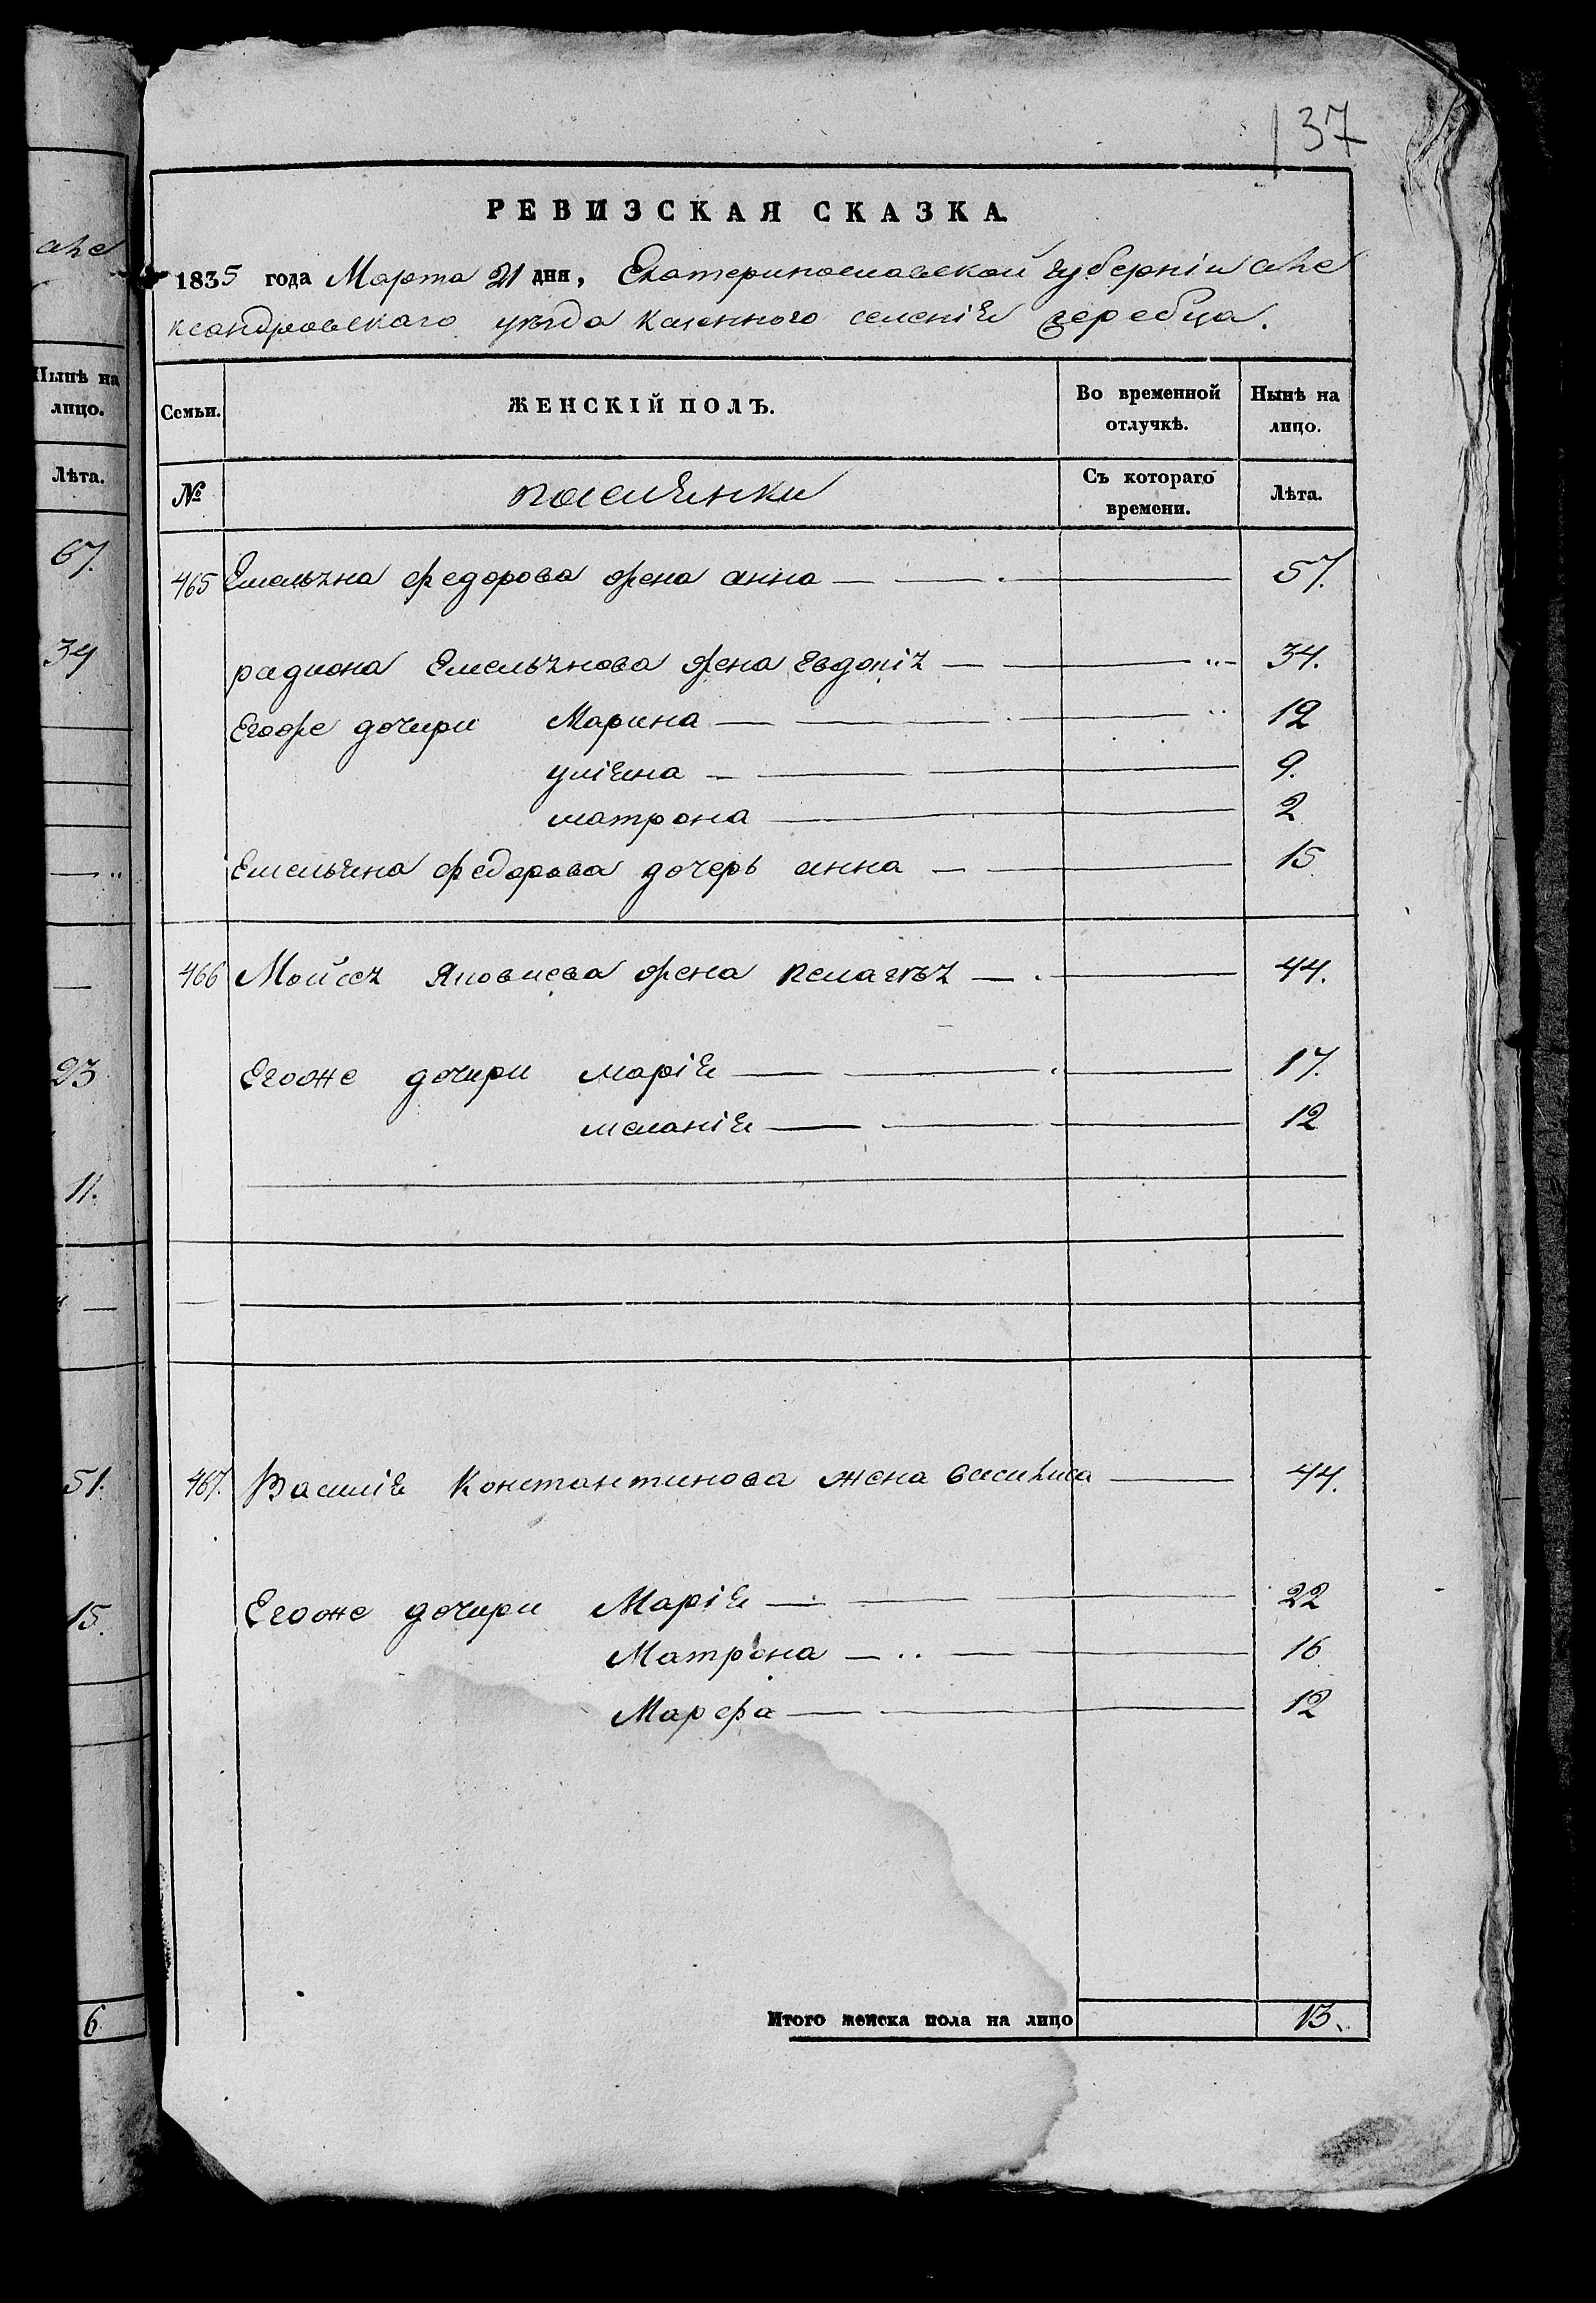 137
РЕВИЗСКАЯ СКАЗКА.
1835 года Марта 21 дня, Екатеринославской губерніи але
ксандровскаго уезда казенного селенія жеребца.
Семьи. ЖЕНСКІЙ ПОЛЪ. Во временной отлучкѣ. Нынѣ на лицо.
№ поселянки Съ котораго времени. Лѣта.
465 Емельяна федорова жена анна — 57.
радиона Емельянова жена Евдокія — 34.
Егоже дочири Марина — 12
уліяна — 9.
матрона — 2
Емельяна федорова дочерь анна — 15
466 Мойсея Яковлева жена пелагея — 44.
Егоже дочири марія — 17.
меланія — 12
467. Василія Константинова жена василиса — 44.
Егоже дочири Марія — 22
Матрона — 16
Марфа — 12
Итого женска пола на лицо 13.
але
Нынѣ на
лицо.
Лѣта.
67.
34
23
11.
51.
15.
6